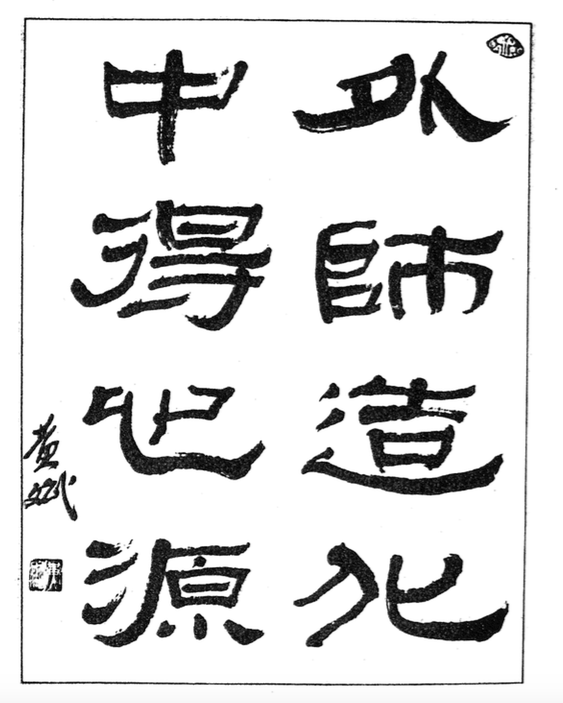 外師造化
中得心源
黄斌